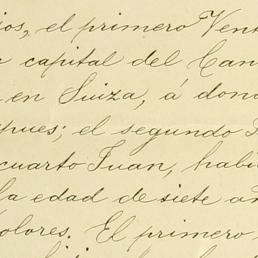 jos, el primero Vent
capital del Can
en Suiza, á dond
pues; el segundo
cuarto Juan, habi
la edad de siete añ
olores. El primero